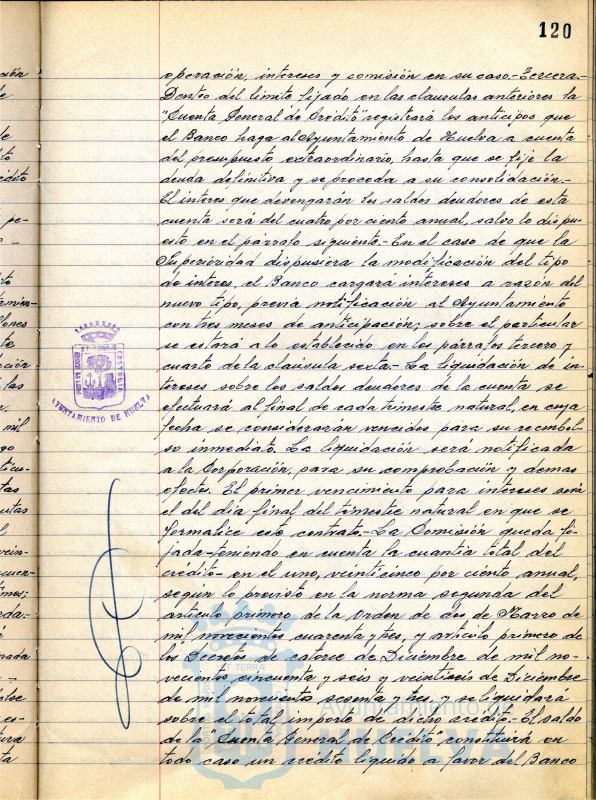 120
operación, intereses y comisión en su caso.- Tercera.-
Dentro del limite fijado en las clausulas anteriores la
"Cuenta General de Crédito" registrará los anticipos que
el Banco haga al Ayuntamiento de Huelva a cuenta
del presupuesto extraordinario, hasta que se fije la
deuda definitiva y se proceda a su consolidación.-
El interes que devengaran los saldos deudores de esta
cuenta será del cuatro por ciento anual, salvo lo dispu-
esto en el párrafo siguiente.- En el caso de que la
Superioridad dispusiera la modificación del tipo
de interes, el Banco cargará intereses a razón del
nuevo tipo, previa notificación al Ayuntamiento
con tres meses de anticipación; sobre el particular
se estará a lo establecido en los párrafos tercero y
cuarto de la cláusula sexta.- La liquidación de in-
tereses sobre los saldos deudores de la cuenta se
efectuará al final de cada trimestre natural, en cuya
fecha se considerarán vencidos para su reembol-
so inmediato. La liquidación será notificada
a la Corporación, para su comprobación y demas
efectos. El primer vencimiento para intereses será
el del dia final del trimestre natural en que se
formalice este contrato.- La Comisión queda fi-
jada -teniendo en cuenta la cuantia total del
crédito- en el uno, veinticinco por ciento anual,
segun lo previsto en la norma segunda del
articulo primero de la Orden de dos de Marzo de
mil novecientos cuarenta y tres, y articulo primero de
los Decretos de catorce de Diciembre de mil no-
vecientos cincuenta y seis y veintiseis de Diciembre
de mil novecientos sesenta y tres, y se liquidará
sobre el total importe de dicho crédito.- El saldo
de la "Cuenta General de Crédito" constituirá en
todo caso un crédito liquido a favor del Banco
AYUNTAMIENTO DE HUELVA
Ayuntamiento de
HUELVA